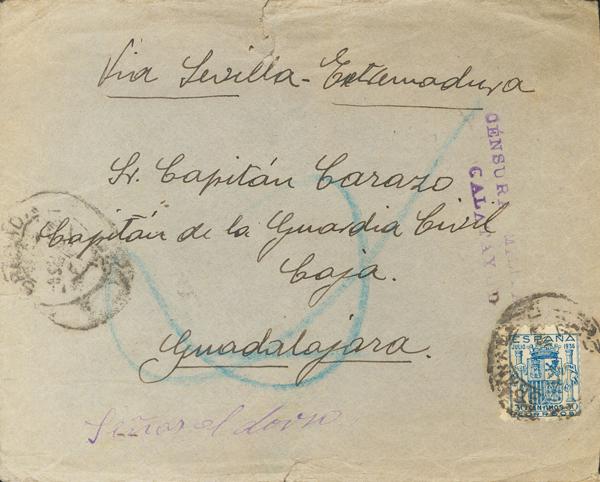 Via Sevilla - Extremadura
Sr. Capitán Carazo
Capitán de la Guardia Civil
Caja.
Guadalajara.
CENSURA
CALATAYUD
ESPAÑA
JULIO 1936
CENTIMOS
CORREOS